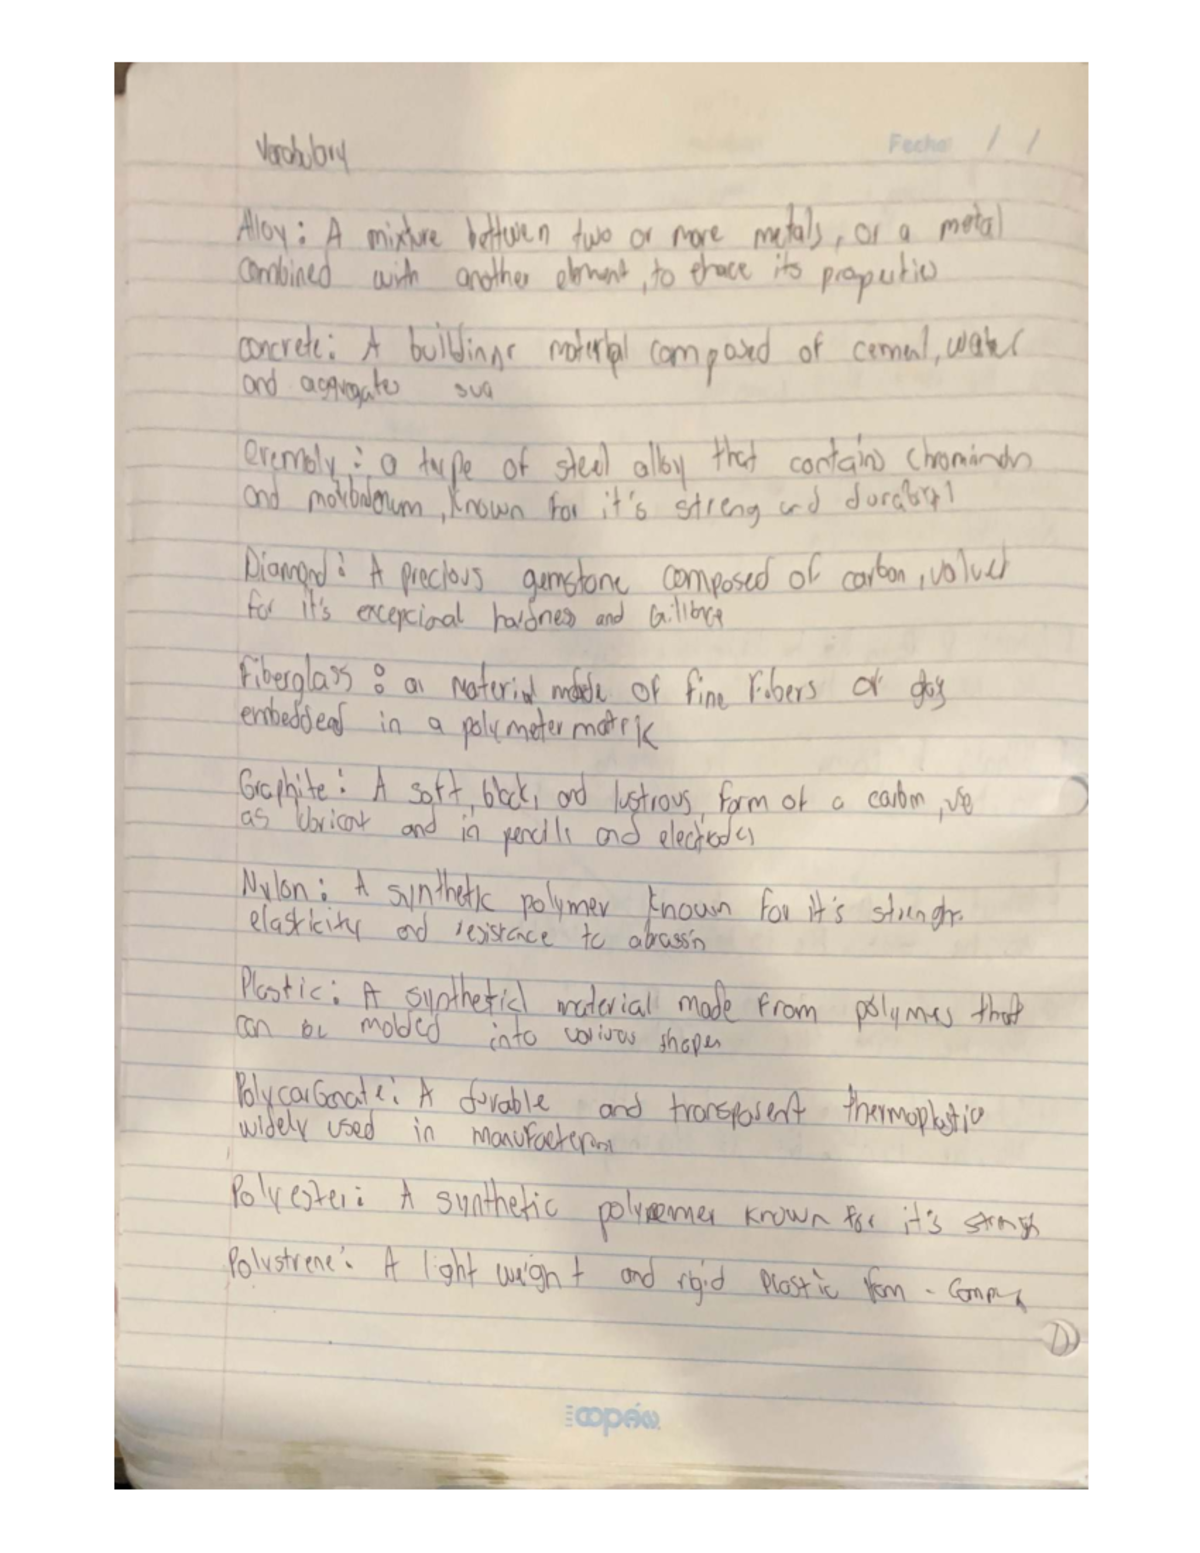 Vocabulary
Fecha: / /
Alloy: A mixture bettwen two or more metals, or a metal
combined with another element, to its properties
concrete: A building material composed of cement, water
and aggregates sua
a type of steel alloy that contains
and known for it's streng and
Diamond: A precious gemstone composed of carbon, valued
for it's excepcional hardness and
Fiberglass: a material made of fine Fibers of
embedded in a polymeter matrix
Graphite: A soft, black, and lustrous form of a carbon,
as lubricant and in pencils and electrodes
Nylon: A synthetic polymer known for it's strength
elasticity and resistance to
Plastic: A material made from polymers that
can be molded into various shapes
Polycarbonate: A durable and transparent thermoplastic
widely used in
Polyester: A synthetic known for it's
Polystrene: A light weight and rigid plastic
D